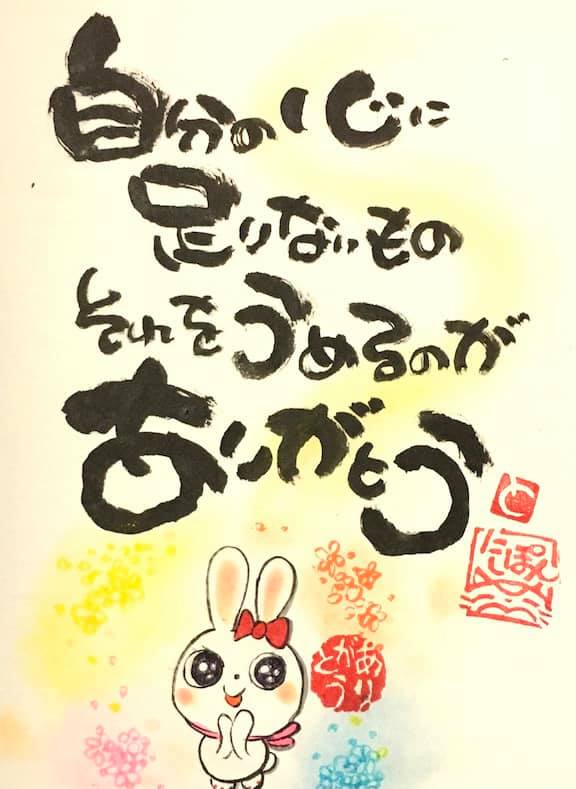 自分の心に
足りないもの
それをうめるのが
ありがとう
にっぽん
ありがとう